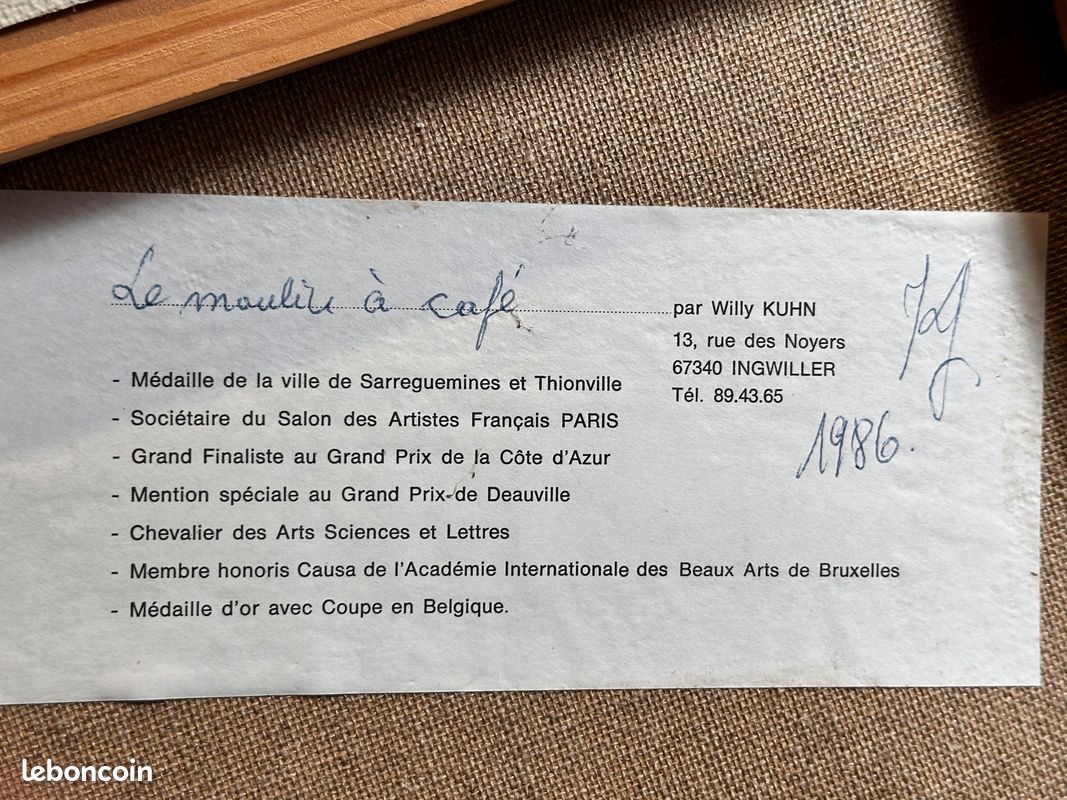 Le moulin à café
par Willy KUHN
13, rue des Noyers
67340 INGWILLER
Tél. 89.43.65
1986.
- Médaille de la ville de Sarreguemines et Thionville
- Sociétaire du Salon des Artistes Français PARIS
- Grand Finaliste au Grand Prix de la Côte d'Azur
- Mention spéciale au Grand Prix de Deauville
- Chevalier des Arts Sciences et Lettres
- Membre honoris Causa de l'Académie Internationale des Beaux Arts de Bruxelles
- Médaille d'or avec Coupe en Belgique.
leboncoin